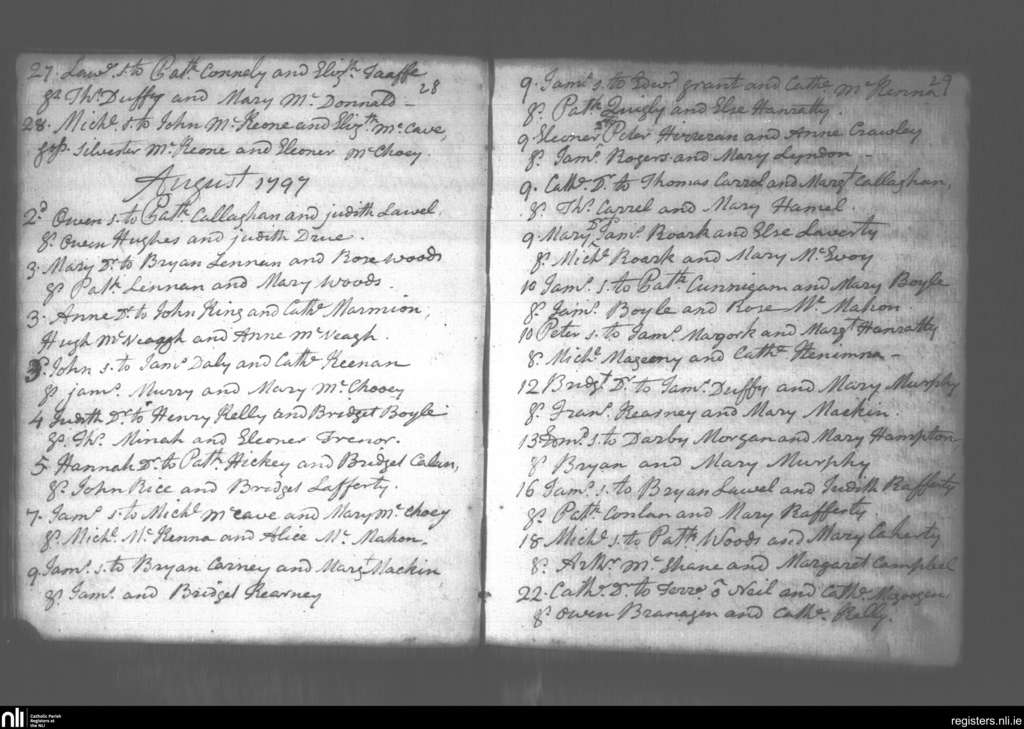 27. Lawe. s. to Patk. Connely and Elizth. Taaffe
gs. Ths. Duffy and Mary Mc. Donnald - 28
28. Miche. s. to John Mc. Keone and Elizth. Mc. Cave,
gosp. Silvester Mc. Keone and Eleoner McChoey.
August 1797
2d. Owen s. to Patk. Callaghan and judith Lawel.
gs. Owen Hughes and judith Drue.
3. Mary Dr. to Bryan Lennan and Rose Woods
gs. Patk. Lennan and Mary Woods.
3. Anne Dr. to John King and Cathe. Marmion,
Hugh McVeaggh and Anne McVeagh.
3. John s. to Jams. Daly and Cathe. Keenan
gs. jams. Murry and Mary McChooey
4 Judith Dr. to Henry Kelly and Bridget Boyle
gs. Ths. Minah and Eleoner Trenor.
5. Hannah Dr. to Patk. Hickey and Bridget Calan,
gs. John Rice and Bridget Lafferty.
7. Jams. s. to Michl. McCave and Mary McChoey
gs. Michl. Mc. Kenna and Alice Mc. Mahon.
9 Jams. s. to Bryan Carney and Margt. Mackin
gs. Jams. and Bridget Kearney
29
9. Jams. s. to Edwd. grant and Cathe. McKenna
gs. Patk. Quigly and Else Hanratty.
9 Eleoner Dr. Peter and Anne Crawley
gs. Jams. Rogers and Mary Lyndon -
9. Cathe. Dr. to Thomas Carrol and Margt. Callaghan,
gs. Ths. Carrel and Mary Hamel.
9 Mary Dr. Jams. Roark and Else Laverty
gs. Michl. Roark and Mary McEvoy
10 Jams. s. to Patk. Cunnigam and Mary Boyle
gs. Jams. Boyle and Rose Mc. Mahon
10 Peter s. to Jams. Murgork and Margt. Hanratty
gs. Michl. Mageeny and Cathe. -
12 Bridgt. Dr. to Jams. Duffy and Mary Murphy
gs. Frans. Kearney and Mary Mackin.
13 Edmd. s. to Darby Morgan and Mary Hampton
gs Bryan and Mary Murphy
16 Jams. s. to Bryan Lawel and Judith Rafferty
gs. Patk Conlan and Mary Rafferty
18 Michl. s. to Patk. Woods and Mary Caherty
gs. Arthr. Mc. Shane and Margaret Campbel
22. Cathe. Dr. to Terre. o Neil and Cathe. Magoogen
gs. Owen Branagen and Cathe. Kelly.
nli
Catholic Parish
Registers at
the NLI
registers.nli.ie